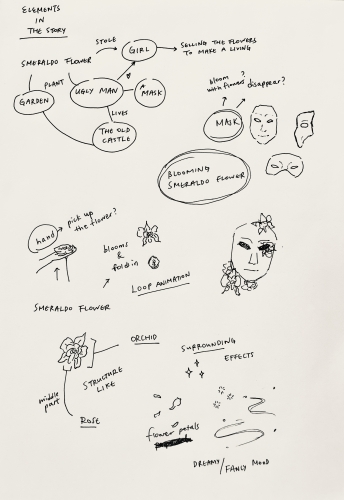 ELEMENTS
IN
THE STORY
STOLE
GIRL
SELLING THE FLOWERS
TO MAKE A LIVING
SMERALDO FLOWER
PLANT
GARDEN
UGLY MAN
MASK
LIVES
THE OLD
CASTLE
bloom
with flowers?
disappear?
MASK
BLOOMING
SMERALDO FLOWER
hand
pick up
the flower?
blooms
&
fold in
LOOP ANIMATION
SMERALDO FLOWER
ORCHID
STRUCTURE
LIKE
middle
part
ROSE
SURROUNDING
EFFECTS
flower petals
DREAMY/FANCY MOOD